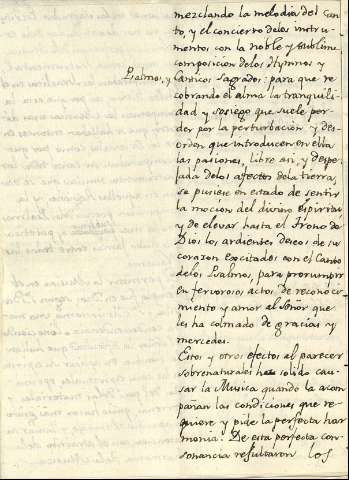 mezclando la melodia del Can-
to, y el concierto delos instru-
mentos con la noble y sublime
composicion delos Hymnos y
Psalmos, y Canticos sagrados: para que re-
cobrando el alma la tranquili-
dad y sosiego que suele per-
der por la perturbacion y des-
orden que introducen en ella
las pasiones, libre asi, y despe-
jada delos afectos dela tierra,
se pusiese en estado de sentir
la mocion del divino Espiritu,
y de elevar hasta el Trono de
Dios los ardientes deseos de su
corazon excitados con el Canto
delos Psalmos, para prorrumpir
en fervorosos actos de reconoci-
miento y amor al Señor que
les ha colmado de gracias y
mercedes.
Estos y otros efectos al parecer
sobrenaturales ha solido cau-
sar la Musica, quando la acom-
pañan las condiciones que re-
quiere y pide la perfecta har-
monia. De esta perfecta con-
sonancia resultaron los